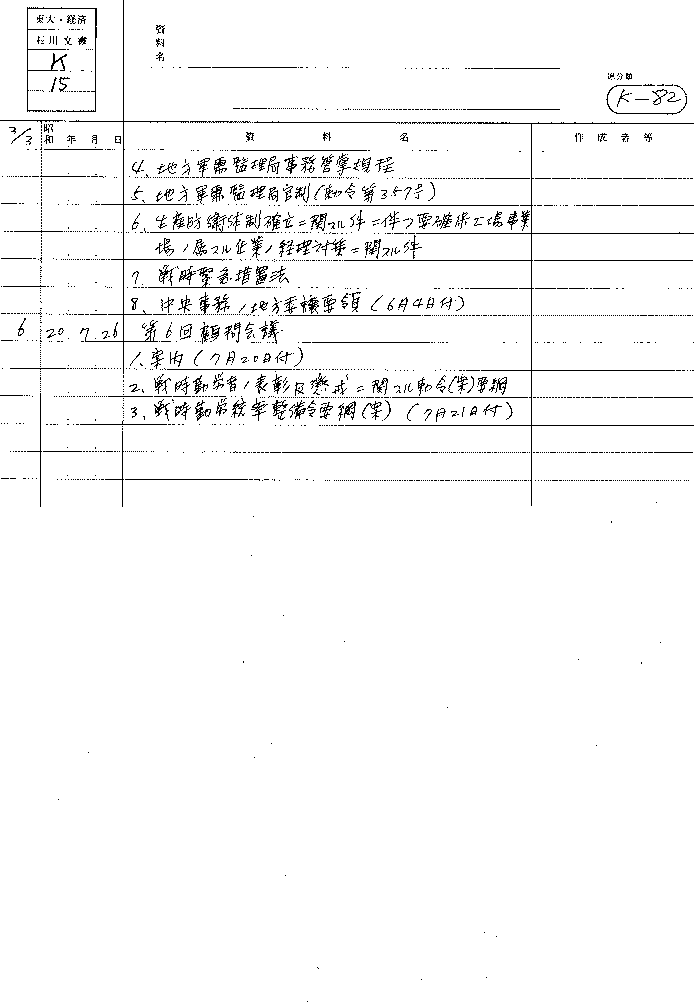 東大・経済
石川文書
K
15
資料名
原分類
K-82
3/3
昭和 年 月 日
資 料 名
作成者等
4、地方軍需監理局事務管掌規程
5、地方軍需監理局官制(勅令第357号)
6、生産防衛体制確立ニ関スル件ニ伴フ要確保工場事業
場ノ属スル企業ノ経理対策ニ関スル件
7、戦時緊急措置法
8、中央事務ノ地方委譲要領(6月4日付)
6 20 7 26 第6回顧問会議
1、案内(7月20日付)
2、戦時勤労者ノ表彰及懲戒ニ関スル勅令(案)要綱
3、戦時勤労統率整備令要綱(案)(7月21日付)